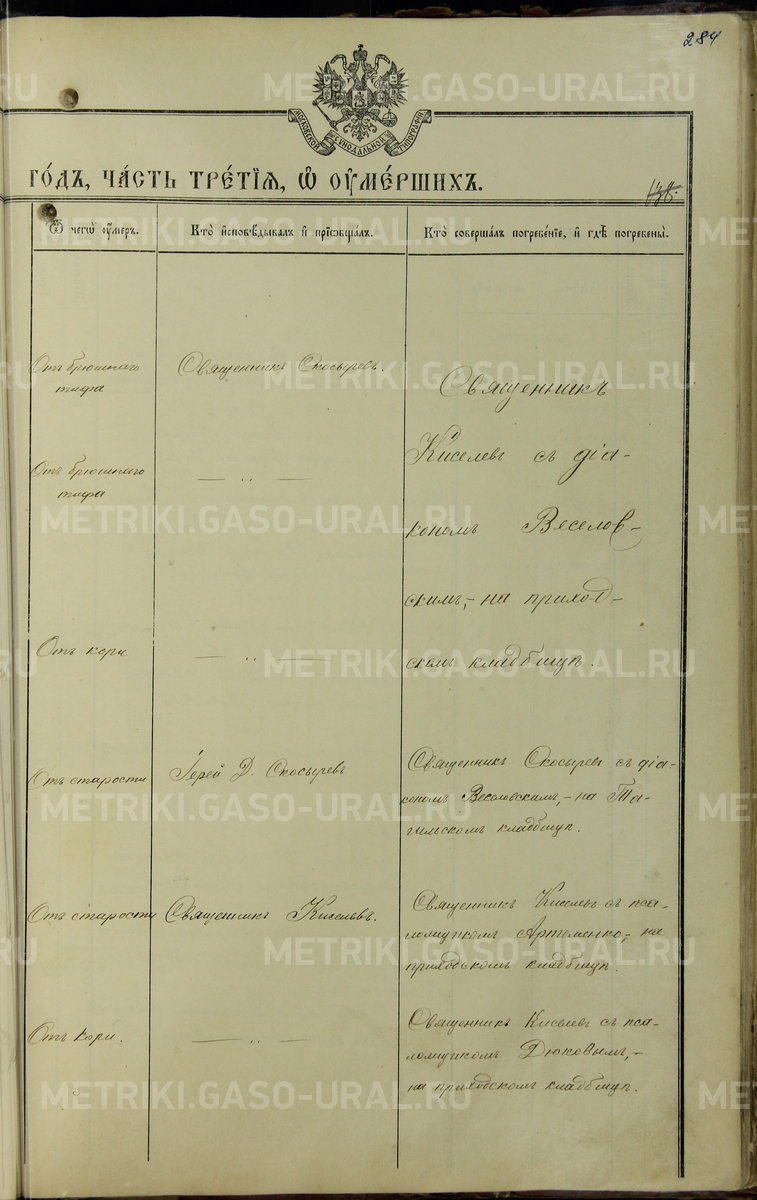 284
METRIKI.GASO-URAL.RU
МОСКОВСКОЙ СѴНОДАЛЬНОЙ ТИПОГРАФІИ
ГО́ДЪ, ЧА́СТЬ ТРЕ́ТІЯ, Ѡ ОУМЕ́РШИХЪ.
138.
Ѿ чегѡ̀ оу́меръ.
Кто̀ исповѣ́дывалъ и҆ прїѡбща́лъ.
Кто̀ соверша́лъ погребе́нїе, и҆ гдѣ̀ погребены̀.
Отъ брюшнаго
тифа
Священникъ Скосыревъ.
Священникъ
Киселевъ съ діа-
кономъ Веселов-
скимъ,- на приход-
скомъ кладбищѣ.
Отъ брюшнаго
тифа
— „ —
Отъ кори
— „ —
Отъ старости
Іерей Д. Скосыревъ
Священникъ Скосыревъ съ діа-
кономъ Веселовскимъ,- на Та-
гильскомъ кладбищѣ.
Отъ старости
Священникъ Киселевъ.
Священникъ Киселевъ съ пса-
ломщикомъ Артеменко,- на
приходскомъ кладбищѣ.
Отъ кори.
— „ —
Священникъ Киселевъ съ пса-
ломщикомъ Дюковымъ,-
на приходскомъ кладбищѣ.